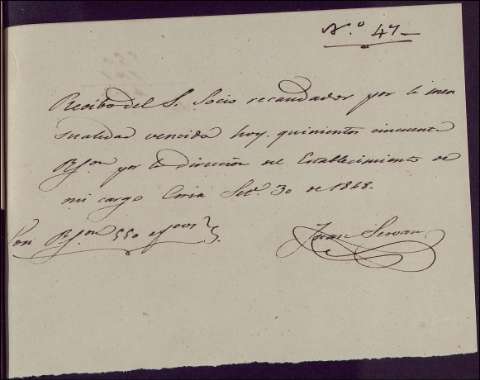 N.º 47
Recibo del S. Socio recaudador por la men
sualidad vencida hoy, quinientos cincuenta
R.s on por la direccion del Establecimiento de
mi cargo Coria Set.e 30 de 1868.
Son R.s on 550
Servan